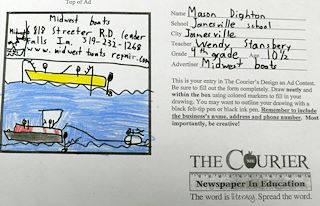 Top of Ad
Midwest boats
818 Streeter R.D. leader
Falls Ia. 319-232-1268
www.midwest boats repair.com
Name Mason Dighton
School Janesville school
City Janesville
Teacher Wendy Stansbery
Grade 4th grade Age 10 1/2
Advertiser Midwest boats
This is your entry in The Courier's Design an Ad Contest.
Be sure to fill out the form completely. Draw neatly and
within the box using colored markers to fill in your
drawing. You may want to outline your drawing with a
black felt-tip pen or black ink pen. Remember to include
the business's name, address and phone number. Most
importantly, be creative!
THE COURIER
Newspaper In Education
The word is literacy. Spread the word.